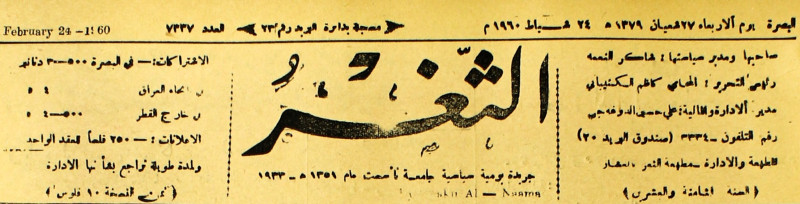 البصرة يوم الاربعاء ٢٧ شعبان ١٣٧٩ هـ ٢٤ شباط ١٩٦٠ م مسجلة بدائرة البريد رقم ٢٣ العدد ٧٣٣٧ February 24 - 1960
صاحبها ومدير سياستها: شاكر النعمه
رئيس التحرير: المحامي كاظم
مدير الادارة والمالية: علي حسين
رقم التلفون ـ ٣٣٣٤ (صندوق البريد ٢٠)
المطبعة والادارة ـ مطبعة الثغر ـ
(السنة الثامنة والعشرين)
الثغر
جريدة يومية سياسية جامعة تأسست عام ١٣٥١ هـ ـ ١٩٣٣
Al — Naama
الاشتراكات: ـ في البصرة ٥٠٠ـ٣٠ دنانير
انحاء العراق ٤ ٥
خارج القطر ٥٠٠ـ٤ ٥
الاعلانات: ـ ٢٥٠ فلساً للعقد الواحد
ولمدة طويلة تراجع بشأنها الادارة
(ثمن النسخة ١٠ فلوس)